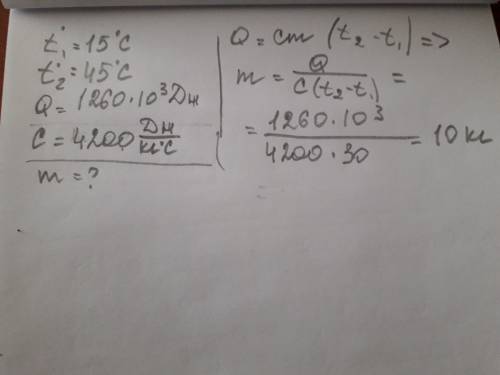 t₁° = 15°C
t₂° = 45°C
Q = 1260·10³Дж
C = 4200 Дж/кг°C
m = ?
Q = cm (t₂ - t₁) =>
m = Q/C(t₂ - t₁) =
= 1260·10³/4200·30 = 10 кг